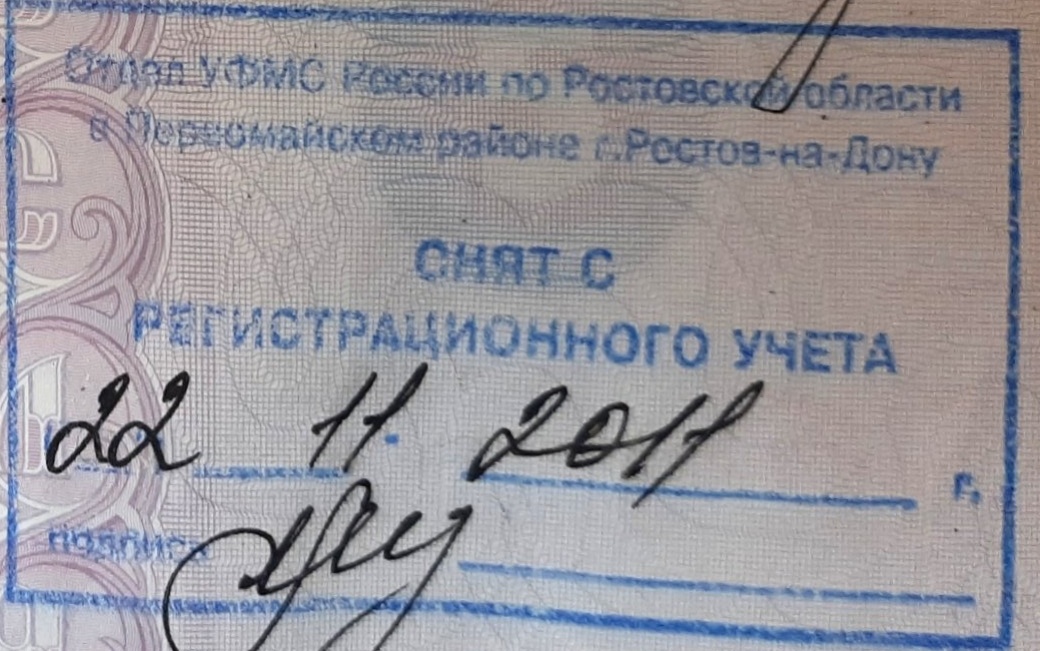 Отдел УФМС России по Ростовской области
в Первомайском районе г.Ростов-на-Дону
СНЯТ С
РЕГИСТРАЦИОННОГО УЧЕТА
22 11. 2011 г.
подпись